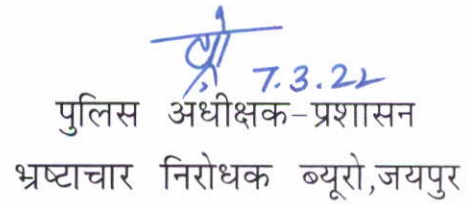 7.3.22
पुलिस अधीक्षक-प्रशासन
भ्रष्टाचार निरोधक ब्यूरो,जयपुर